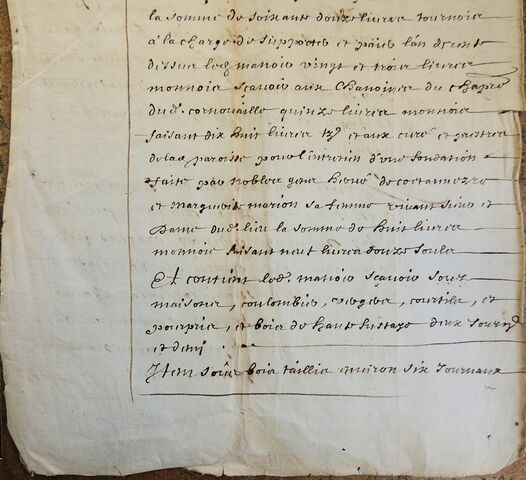 la somme de soixante douze livres tournois
a la charge de supporter et paier l'an de rente
dessur led manoir vingt et trois livres
monnoie sçavoir aux chanoines du chap̃re
dud. cornouaille quinze livres monnoie
faisant dix huit livres tz et aux curé et prestres
de lad paroisse pour l'entretien d'une fondation
faitte par nobles gens hervé de coetanezre
et marguerite marion sa femme vivant sieur et
dame dud. lieu la somme de huit livres
monnoie faisant neuf livres douze soulz
Et contient led. manoir sçavoir soubz
maisons, coulombier, verger, courtils, et
pourpris, et bois de haute fustaye deux journ
et demi
Item soubz bois taillis environ six journaux